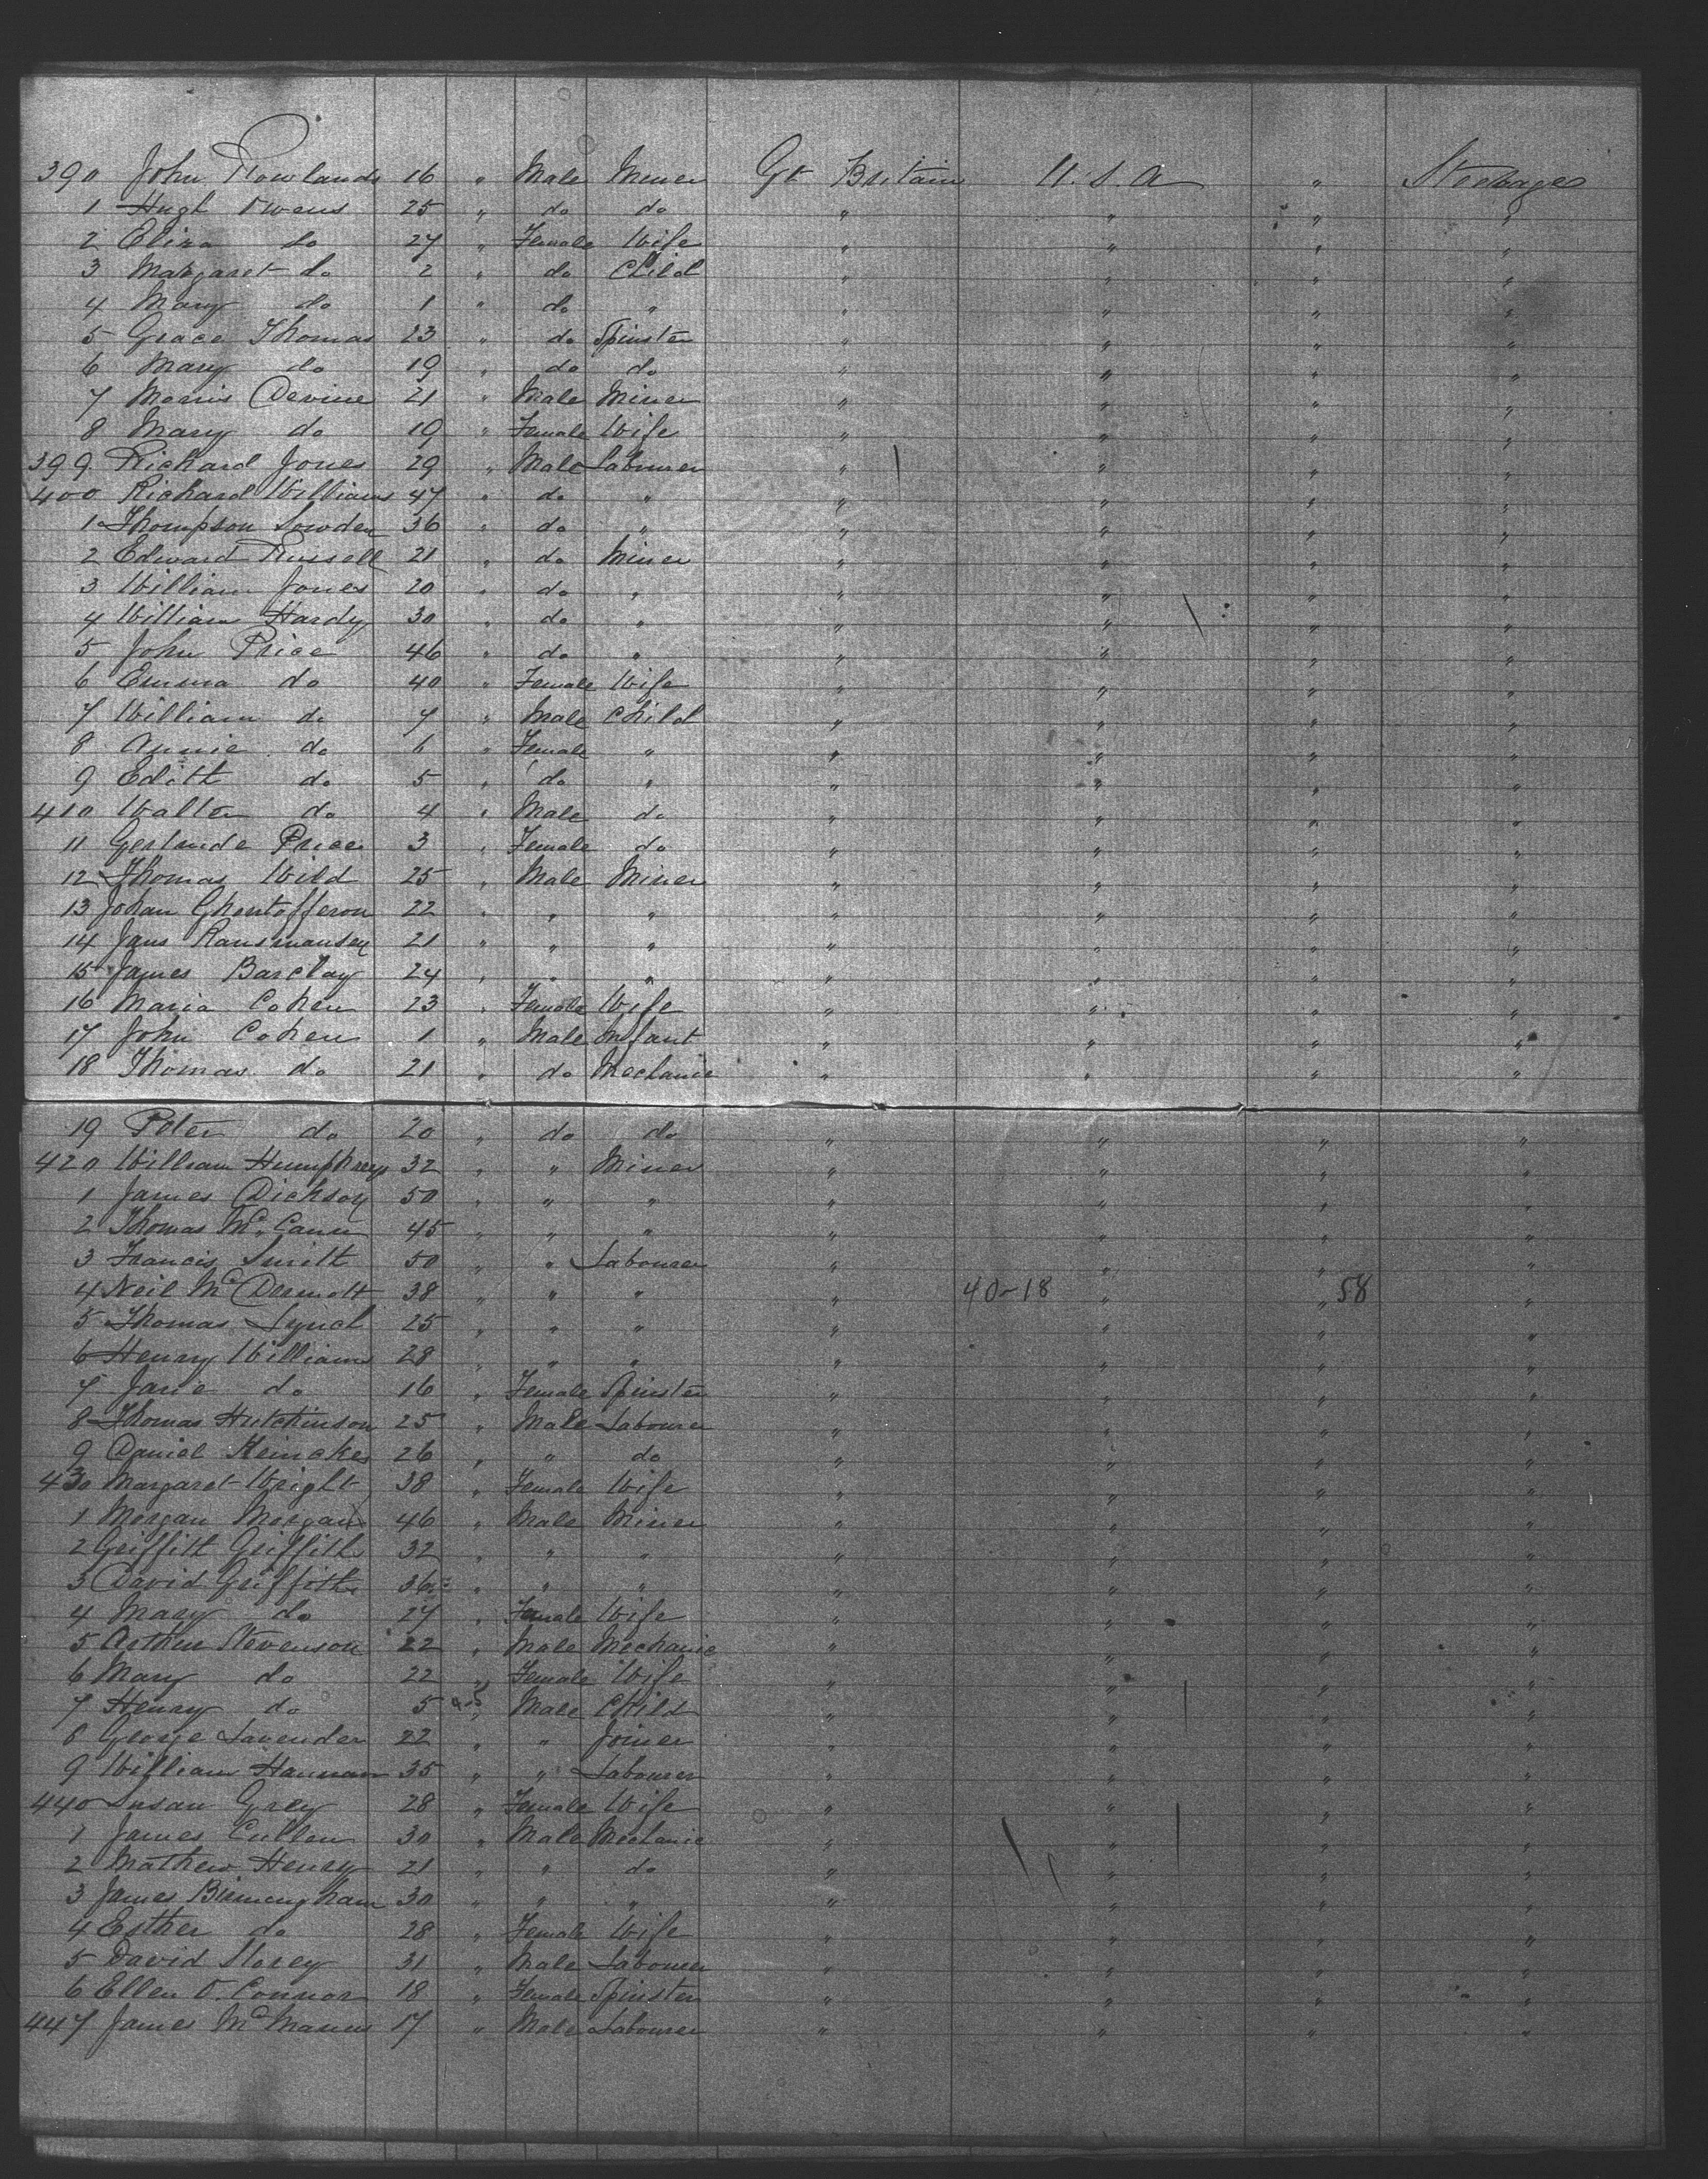 390 John Rowlands 16 " Male Miner Gt Britain U.S.A " Steerage
1 Hugh Owens 25 " do do " " " "
2 Eliza do 27 " Female Wife " " " "
3 Margaret do 2 " do Child " " " "
4 Mary do 1 " do " " " " "
5 Grace Thomas 23 " do Spinster " " " "
6 Mary do 19 " do do " " " "
7 Morris Devine 21 " Male Miner " " " "
8 Mary do 19 " Female Wife " " " "
399 Richard Jones 29 " Male Labourer " " " "
400 Richard Williams 47 " do " " " " "
1 Thompson Lowden 36 " do " " " " "
2 Edward Russell 21 " do Miner " " " "
3 William Jones 20 " do " " " " "
4 William Hardy 30 " do " " " " "
5 John Price 46 " do " " " " "
6 Emma do 40 " Female Wife " " " "
7 William do 7 " Male Child " " " "
8 Annie do 6 " Female " " " " "
9 Edith do 5 " do " " " " "
410 Walter do 4 " Male do " " " "
11 Gertrude Price 3 " Female do " " " "
12 Thomas Wild 25 " Male Miner " " " "
13 Johan 22 " " " " " " "
14 Jans 21 " " " " " " "
15 James Barclay 24 " " " " " " "
16 Maria Cohen 23 " Female Wife " " " "
17 John Cohen 1 " Male Infant " " " "
18 Thomas do 21 " do Mechanic " " " "
19 Peter do 20 " do do " " " "
420 William Humphreys 32 " " Miner " " " "
1 James Dickson 50 " " " " " " "
2 Thomas McCann 45 " " " " " " "
3 Francis Smith 50 " " Labourer " " " "
4 Neil McDermott 38 " " " " 40-18 " " 58 "
5 Thomas Lynch 25 " " " " " " "
6 Henry Williams 28 " " " " " " "
7 Jane do 16 " Female Spinster " " " "
8 Thomas Hutchinson 25 " Male Labourer " " " "
9 Daniel 26 " " do " " " "
430 Margaret Wright 38 " Female Wife " " " "
1 Morgan Morgan 46 " Male Miner " " " "
2 Griffith Griffiths 32 " " " " " " "
3 David Griffiths 36 " " " " " " "
4 Mary do 27 " Female Wife " " " "
5 Arthur Stevenson 22 " Male Mechanic " " " "
6 Mary do 22 " Female Wife " " " "
7 Henry do 5 " Male Child " " " "
8 George Lavender 22 " " Joiner " " " "
9 William Hannan 35 " " Labourer " " " "
440 Susan Grey 28 " Female Wife " " " "
1 James Cullen 30 " Male Mechanic " " " "
2 Mathew Henry 21 " " do " " " "
3 James Birmingham 30 " " " " " " "
4 Esther do 28 " Female Wife " " " "
5 David Storey 31 " Male Labourer " " " "
6 Ellen O.Connor 18 " Female Spinster " " " "
447 James McManus 17 " Male Labourer " " " "